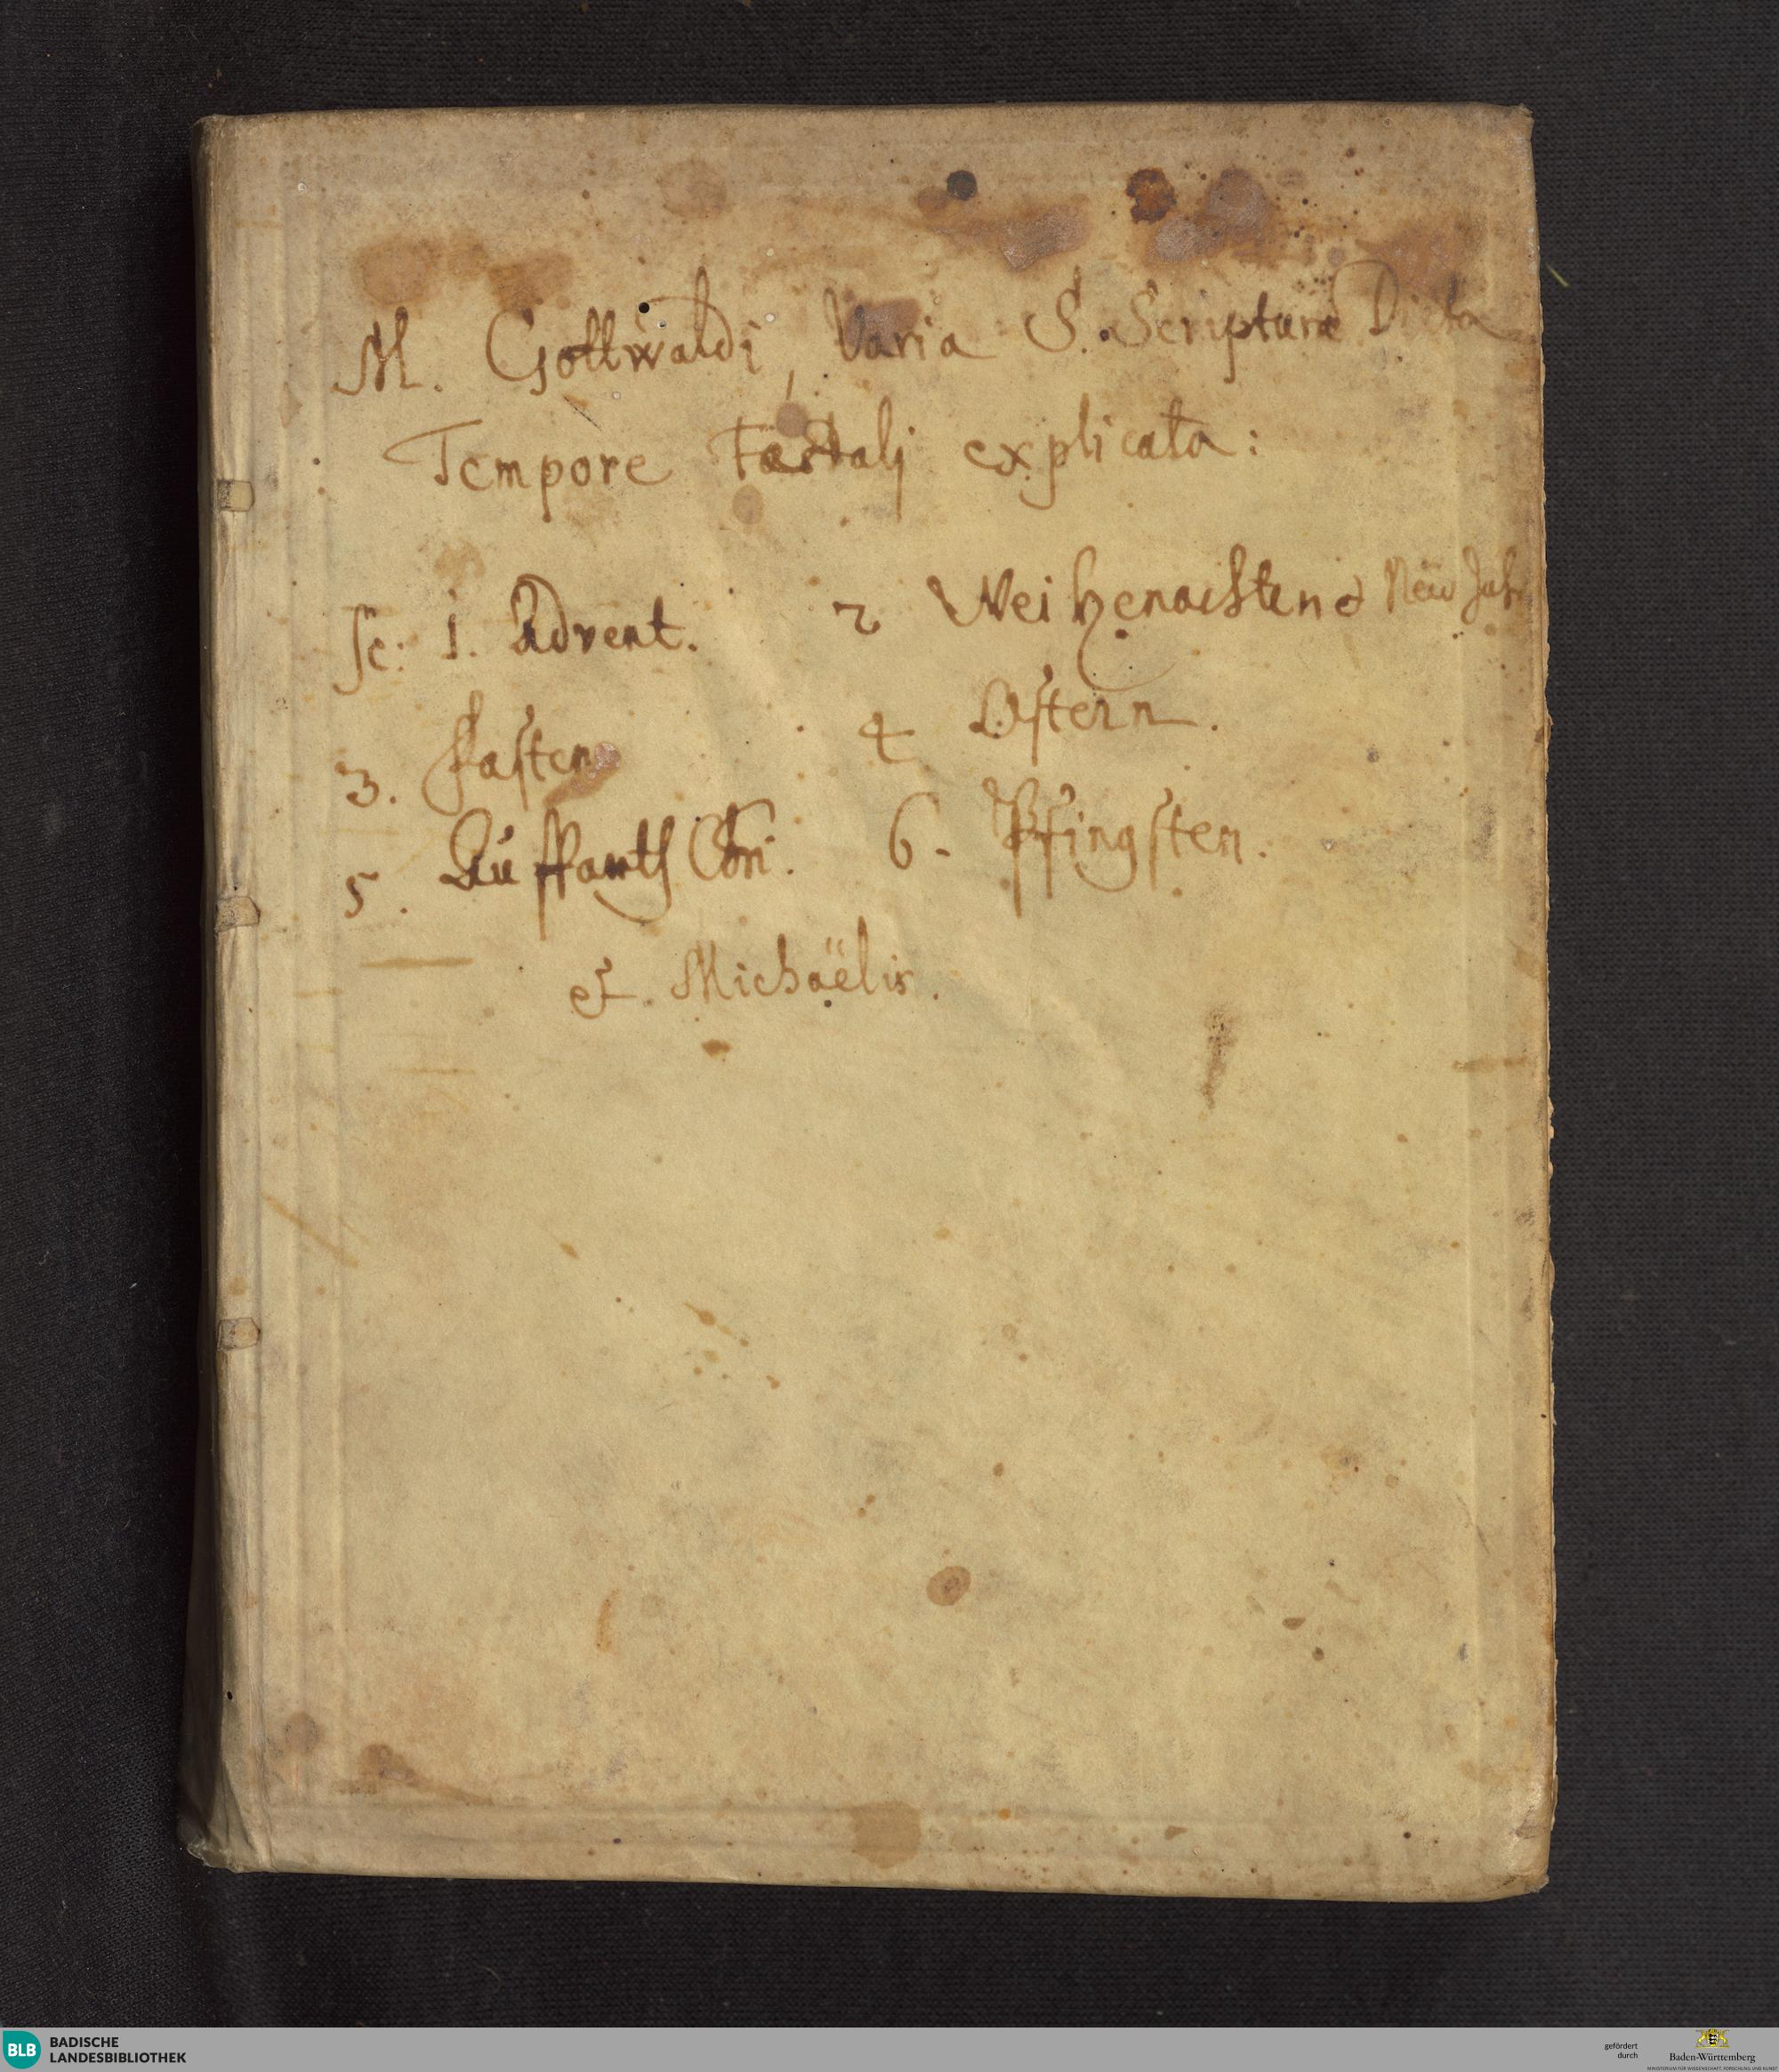 M. Gottwaldi, Varia S. Scripturæ Dicta
Tempore Fæstalj explicata:
sc: 1. Advent. 2 Weihenachten & New Jahr
3. Fasten 4 Ostern.
5. Auffarth Chri. 6. Pfingsten.
et. Michaëlis.
BLB BADISCHE LANDESBIBLIOTHEK
gefördert durch
Baden-Württemberg
MINISTERIUM FÜR WISSENSCHAFT, FORSCHUNG UND KUNST